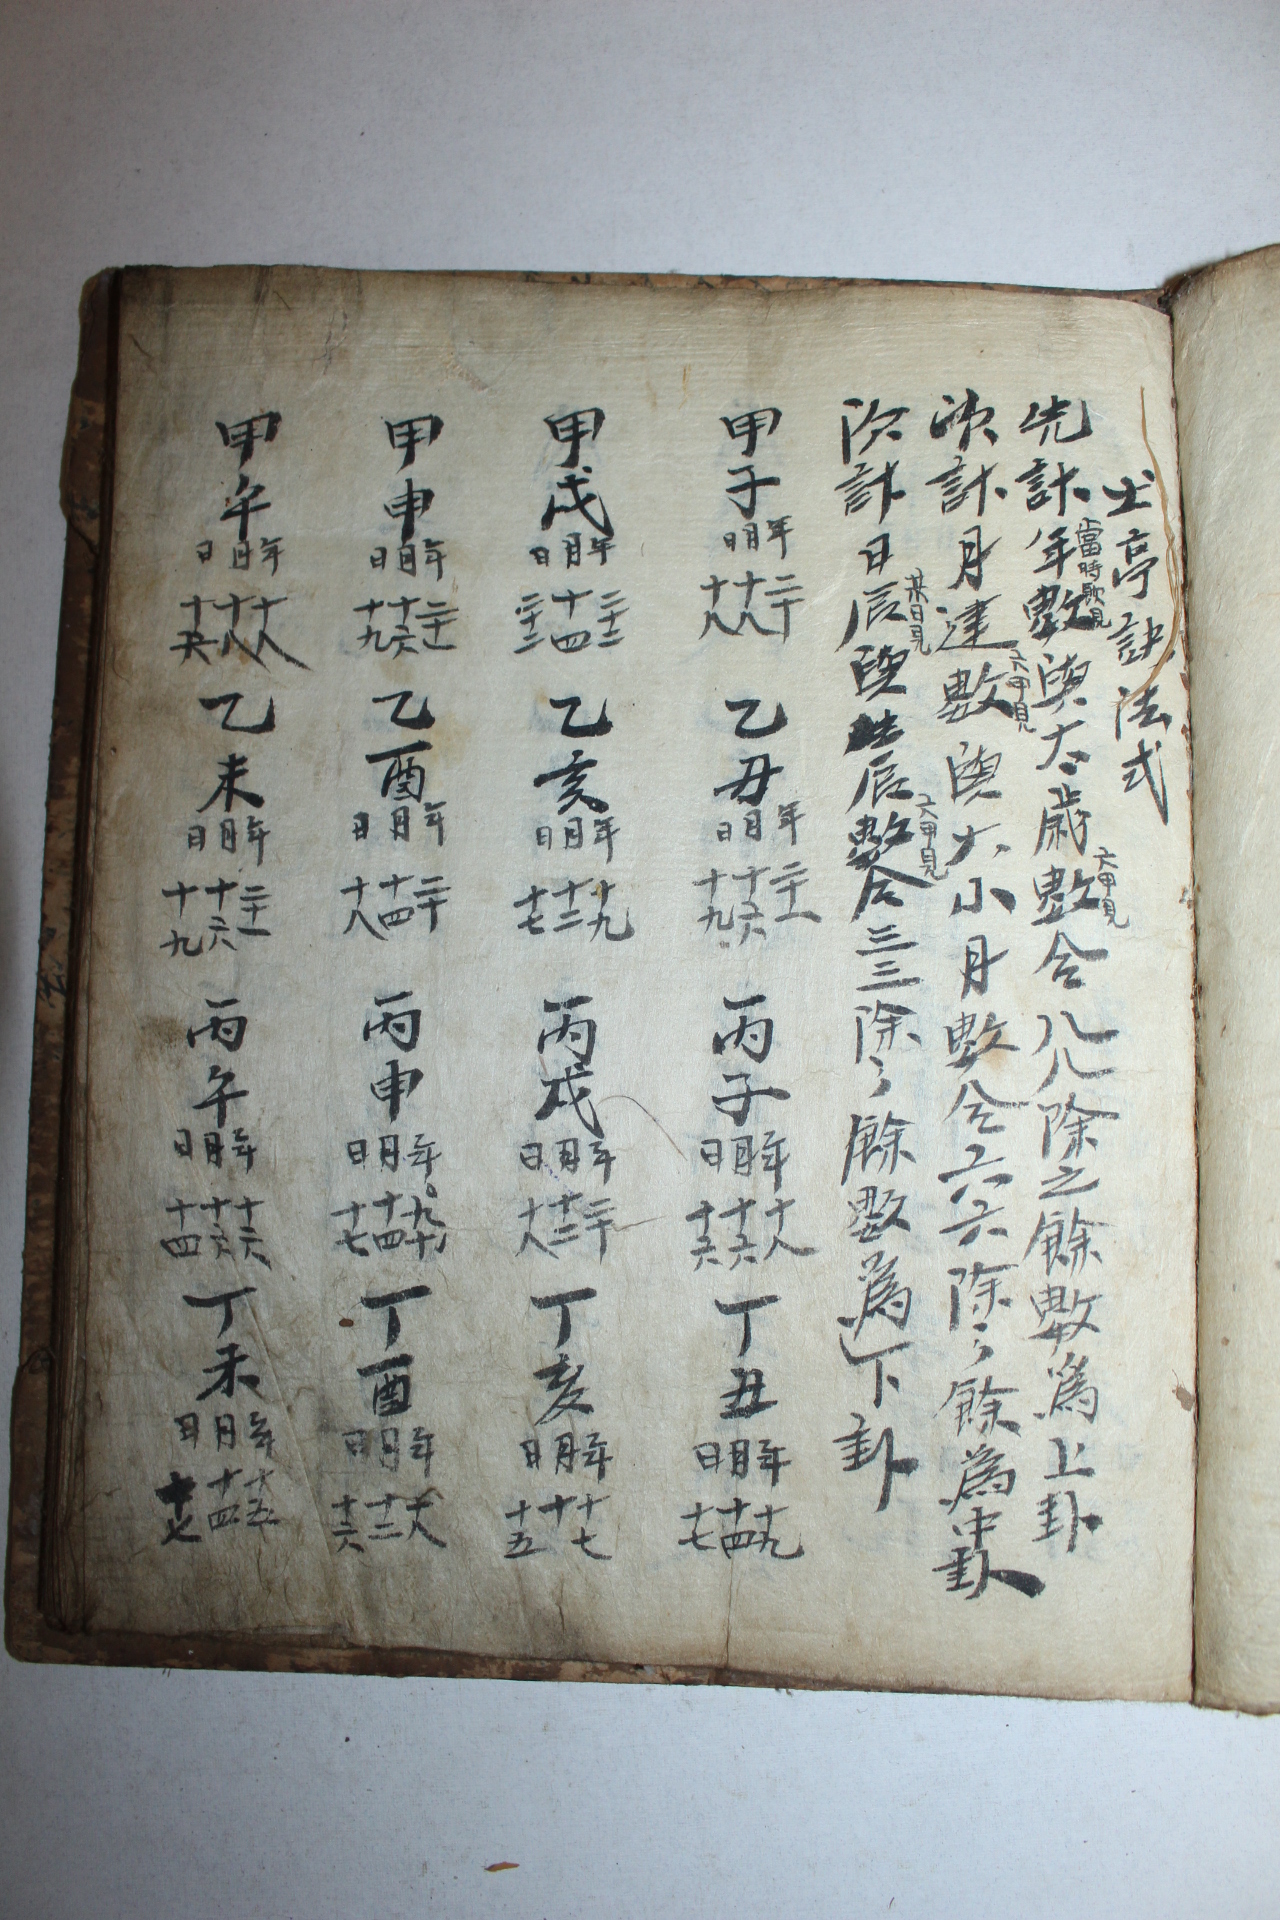 土亭訣法式
先計年數當時歲見與太歲數六甲見合八八除之餘數爲上卦
次計月建數六甲見與大小月數合六六除々餘爲中卦
次計日辰某日見與日辰數六甲見合三三除々餘數爲下卦
甲子 年二十 月十八 日十八 乙丑 年二十一 月十六 日十九 丙子 年十八 月十六 日十六 丁丑 年十九 月十四 日十七
甲戌 年二十二 月十四 日二十二 乙亥 年十九 月十二 日十七 丙戌 年二十 月十二 日十八 丁亥 年十七 月十 日十五
甲申 年二十一 月十六 日十九 乙酉 年二十 月十四 日十八 丙申 年 月十四 日十七 丁酉 年十八 月十二 日十六
甲午 年十八 月十八 日 乙未 年二十一 月十六 日十九 丙午 年十六 月十六 日十四 丁未 年十五 月十四 日十七